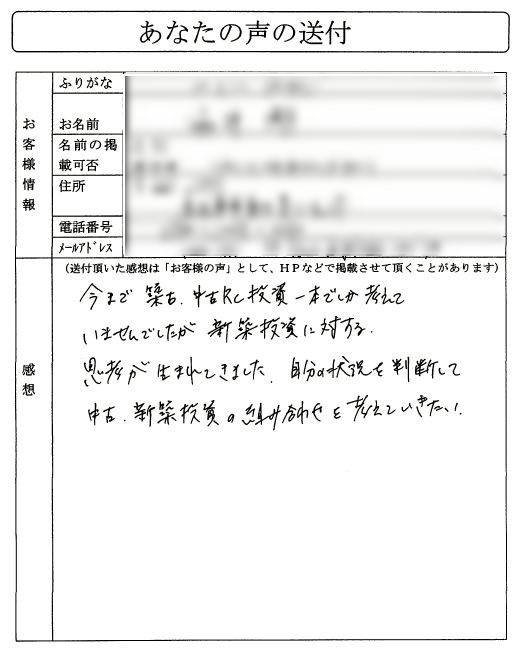 あなたの声の送付
お客様情報
ふりがな
お名前
名前の掲
載可否
住所
電話番号
メールアドレス
感想
(送付頂いた感想は「お客様の声」として、HPなどで掲載させて頂くことがあります)
今まで 築古、中古RC投資一本でしか考えて
いませんでしたが 新築投資に対する、
思考が生まれてきました、自分の状況を判断して
中古、新築投資の組み合わせを考えていきたい。